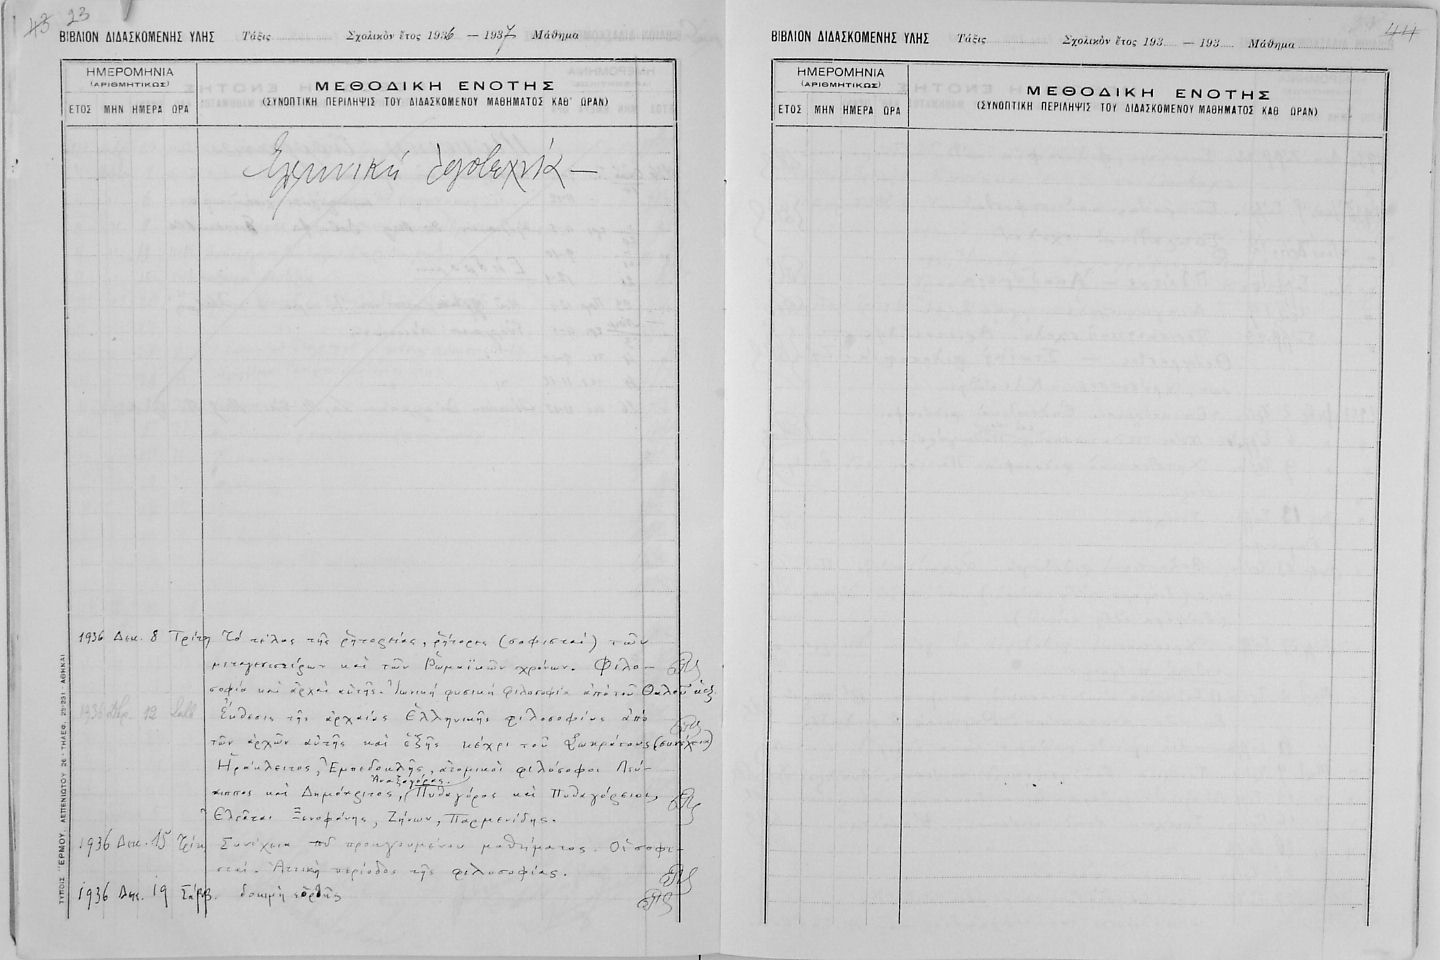 43 23
ΒΙΒΛΙΟΝ ΔΙΔΑΣΚΟΜΕΝΗΣ ΥΛΗΣ Τάξις Σχολικὸν ἔτος 1936 — 1937 Μάθημα
ΗΜΕΡΟΜΗΝΙΑ
(ΑΡΙΘΜΗΤΙΚΩΣ)
ΕΤΟΣ ΜΗΝ ΗΜΕΡΑ ΩΡΑ
ΜΕΘΟΔΙΚΗ ΕΝΟΤΗΣ
(ΣΥΝΟΠΤΙΚΗ ΠΕΡΙΛΗΨΙΣ ΤΟΥ ΔΙΔΑΣΚΟΜΕΝΟΥ ΜΑΘΗΜΑΤΟΣ ΚΑΘ' ΩΡΑΝ)
Ἑλληνικὴ Λογοτεχνία —
1936 Δεκ. 8 Τρίτη Τὸ τέλος τῆς ῥητορείας, ῥήτορες (σοφισταί) τῶν
μεταγενεστέρων καὶ τῶν Ῥωμαϊκῶν χρόνων. Φιλο-
σοφία καὶ ἀρχαὶ αὐτῆς. Ἰωνικὴ φυσικὴ φιλοσοφία ἀπὸ τοῦ Θαλοῦ
1936 Δεκ. 12 Σαββ. Ἔκθεσις τῆς ἀρχαίας Ἑλληνικῆς φιλοσοφίας ἀπὸ
τῶν ἀρχῶν αὐτῆς καὶ ἑξῆς μέχρι τοῦ Σωκράτους (συνέχεια)
Ἡράκλειτος, Ἐμπεδοκλῆς, ἀτομικοὶ φιλόσοφοι Λεύ-
Ἀναξαγόρας.
κιππος καὶ Δημόκριτος, Πυθαγόρας καὶ Πυθαγόρειοι,
Ἐλεᾶται Ξενοφάνης, Ζήνων, Παρμενίδης.
1936 Δεκ. 15 Τρίτη Συνέχεια τοῦ προηγουμένου μαθήματος. Οἱ σοφι-
σταί. Ἀττικὴ περίοδος τῆς φιλοσοφίας.
1936 Δεκ. 19 Σάββ. δοκιμὴ ἑορτῆς
ΤΥΠΟΙΣ "ΕΡΜΟΥ, ΛΕΠΕΝΙΩΤΟΥ 26 - ΤΗΛΕΦ. 25-231 - ΑΘΗΝΑΙ
44
ΒΙΒΛΙΟΝ ΔΙΔΑΣΚΟΜΕΝΗΣ ΥΛΗΣ Τάξις Σχολικὸν ἔτος 193 — 193 Μάθημα
ΗΜΕΡΟΜΗΝΙΑ
(ΑΡΙΘΜΗΤΙΚΩΣ)
ΕΤΟΣ ΜΗΝ ΗΜΕΡΑ ΩΡΑ
ΜΕΘΟΔΙΚΗ ΕΝΟΤΗΣ
(ΣΥΝΟΠΤΙΚΗ ΠΕΡΙΛΗΨΙΣ ΤΟΥ ΔΙΔΑΣΚΟΜΕΝΟΥ ΜΑΘΗΜΑΤΟΣ ΚΑΘ ΩΡΑΝ)